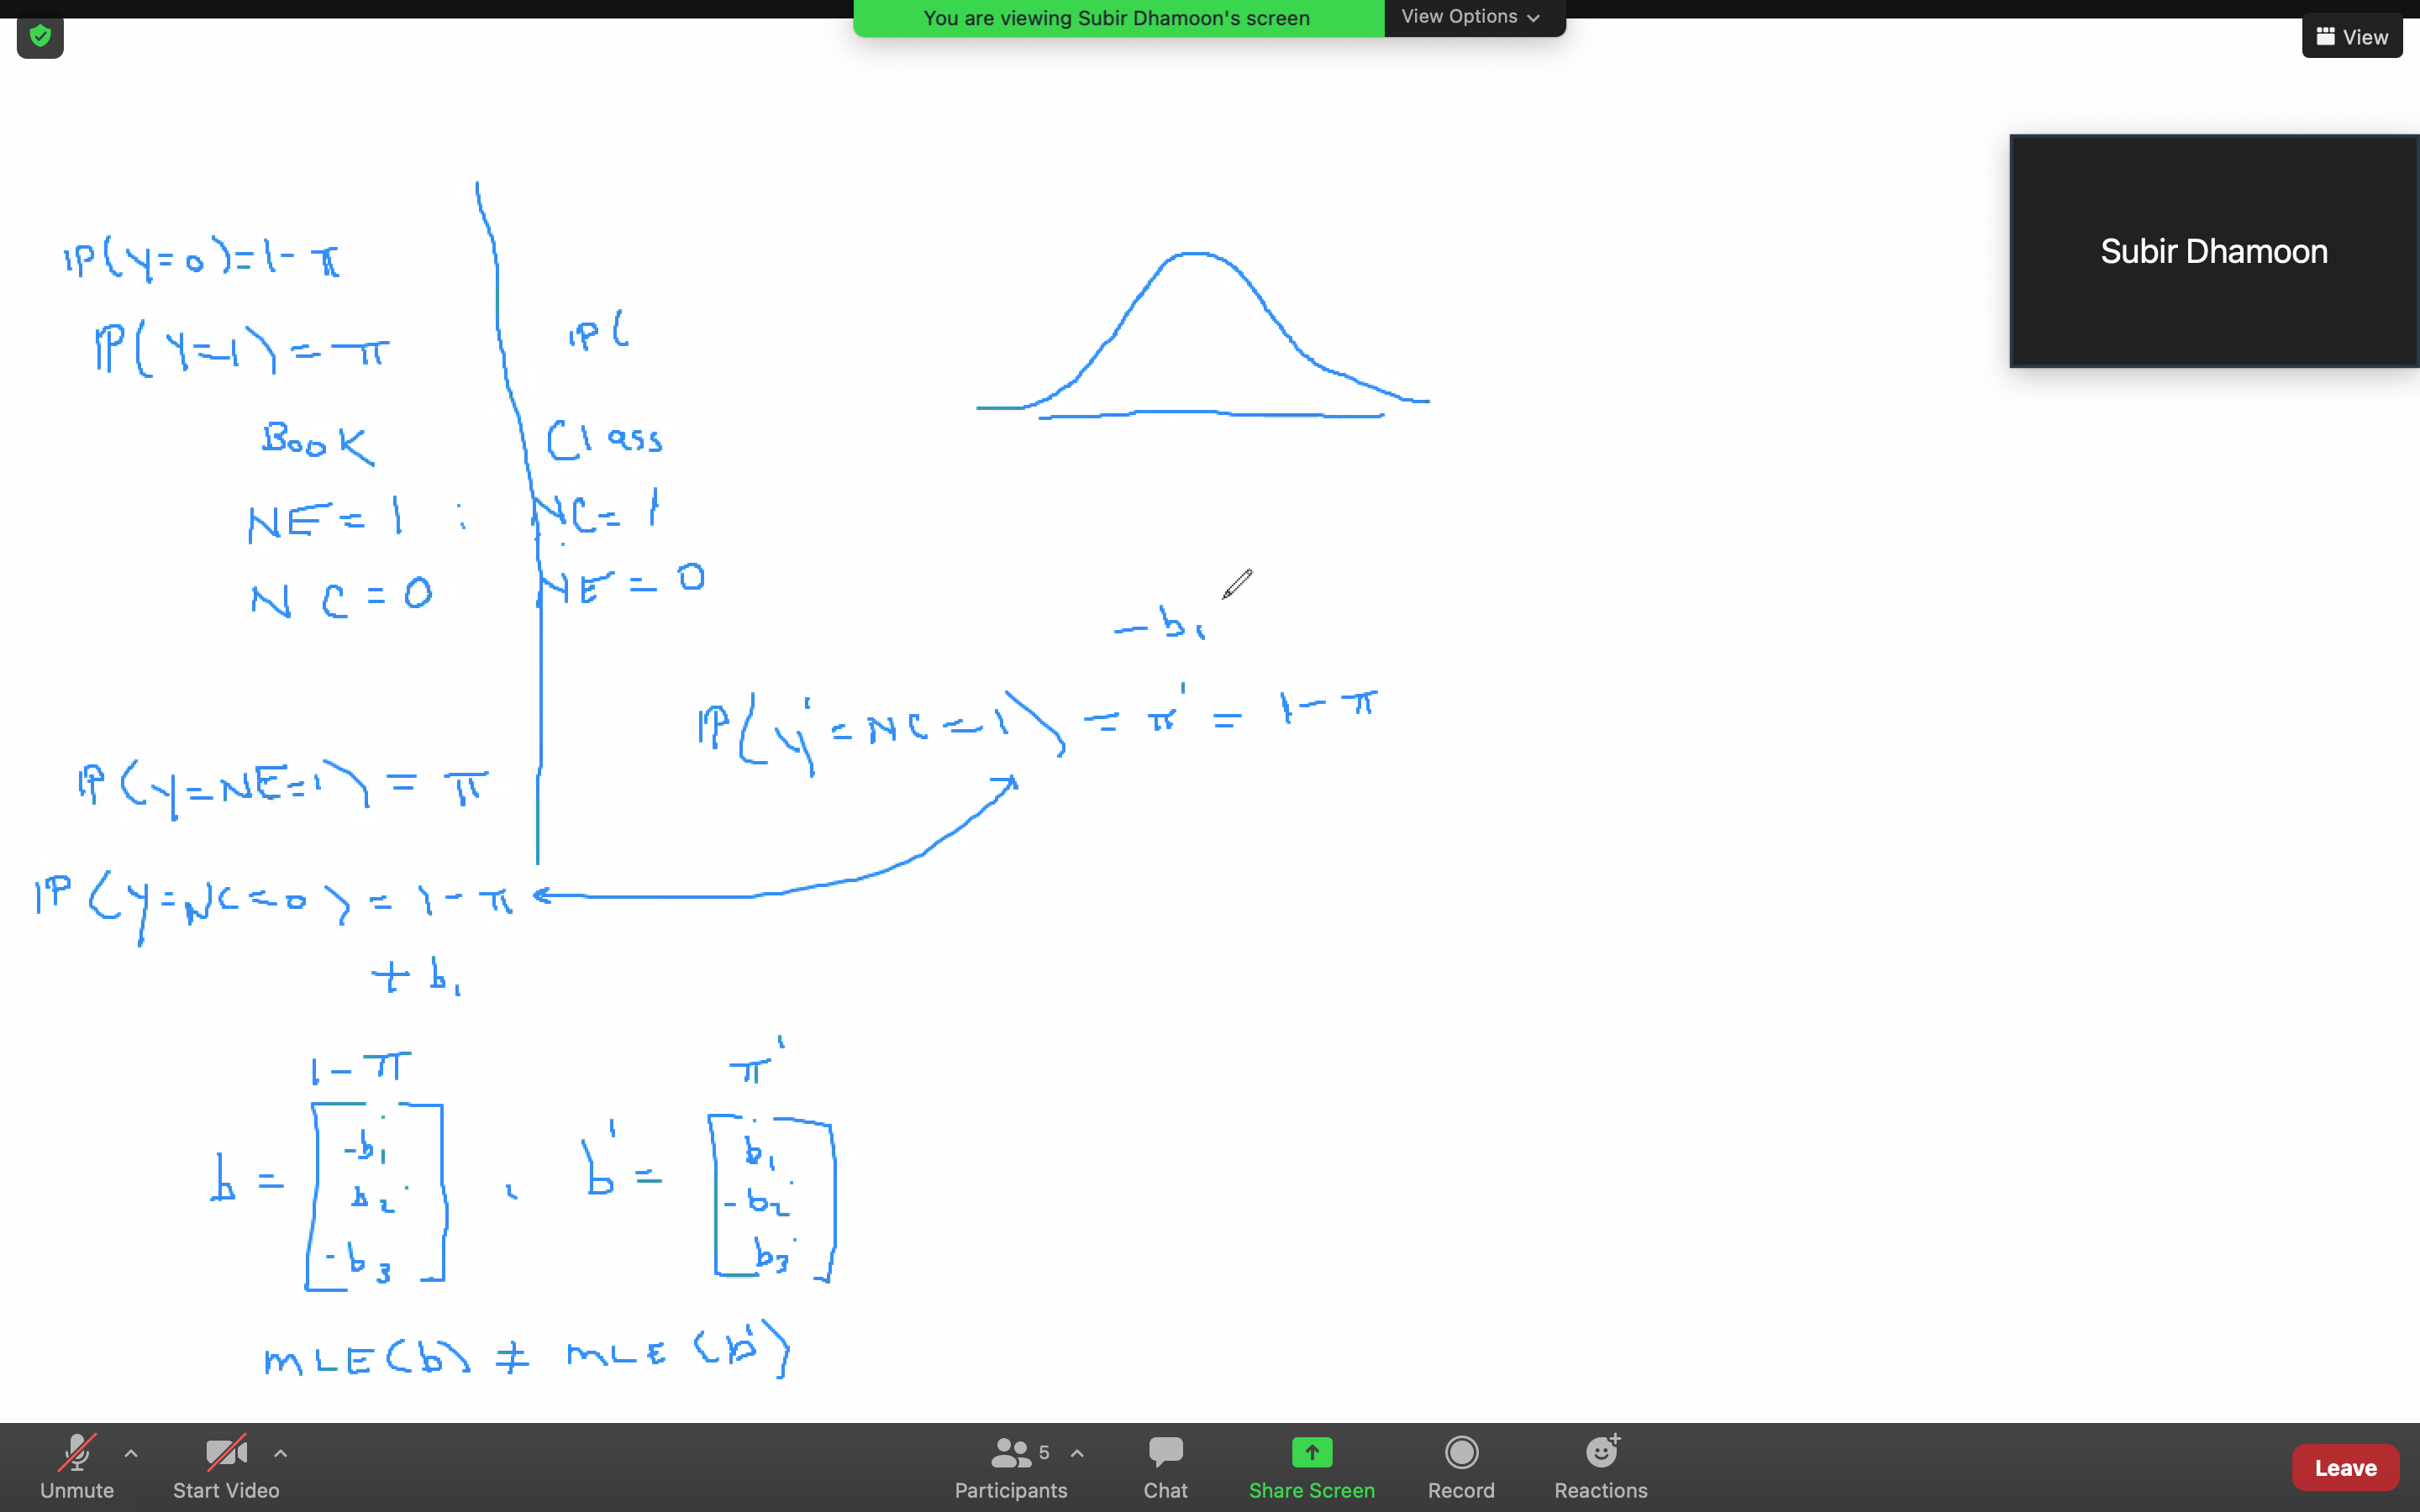 You are viewing Subir Dhamoon's screen
View Options
View
Subir Dhamoon
IP(Y=0)=1-π
IP(Y=1)=π
IP(
Book
Class
NE=1 :
NC=1
NC=0
NE=0
-b₁
IP(Y'=NC=1)=π'=1-π
IP(Y=NE=1)=π
IP(Y=NC=0)=1-π
+b₁
1-π
π'
b=
-b₁
b₂
-b₃
,
b'=
b₁
-b₂
b₃
MLE(b)≠MLE(b')
Unmute
Start Video
5
Participants
Chat
Share Screen
Record
Reactions
Leave